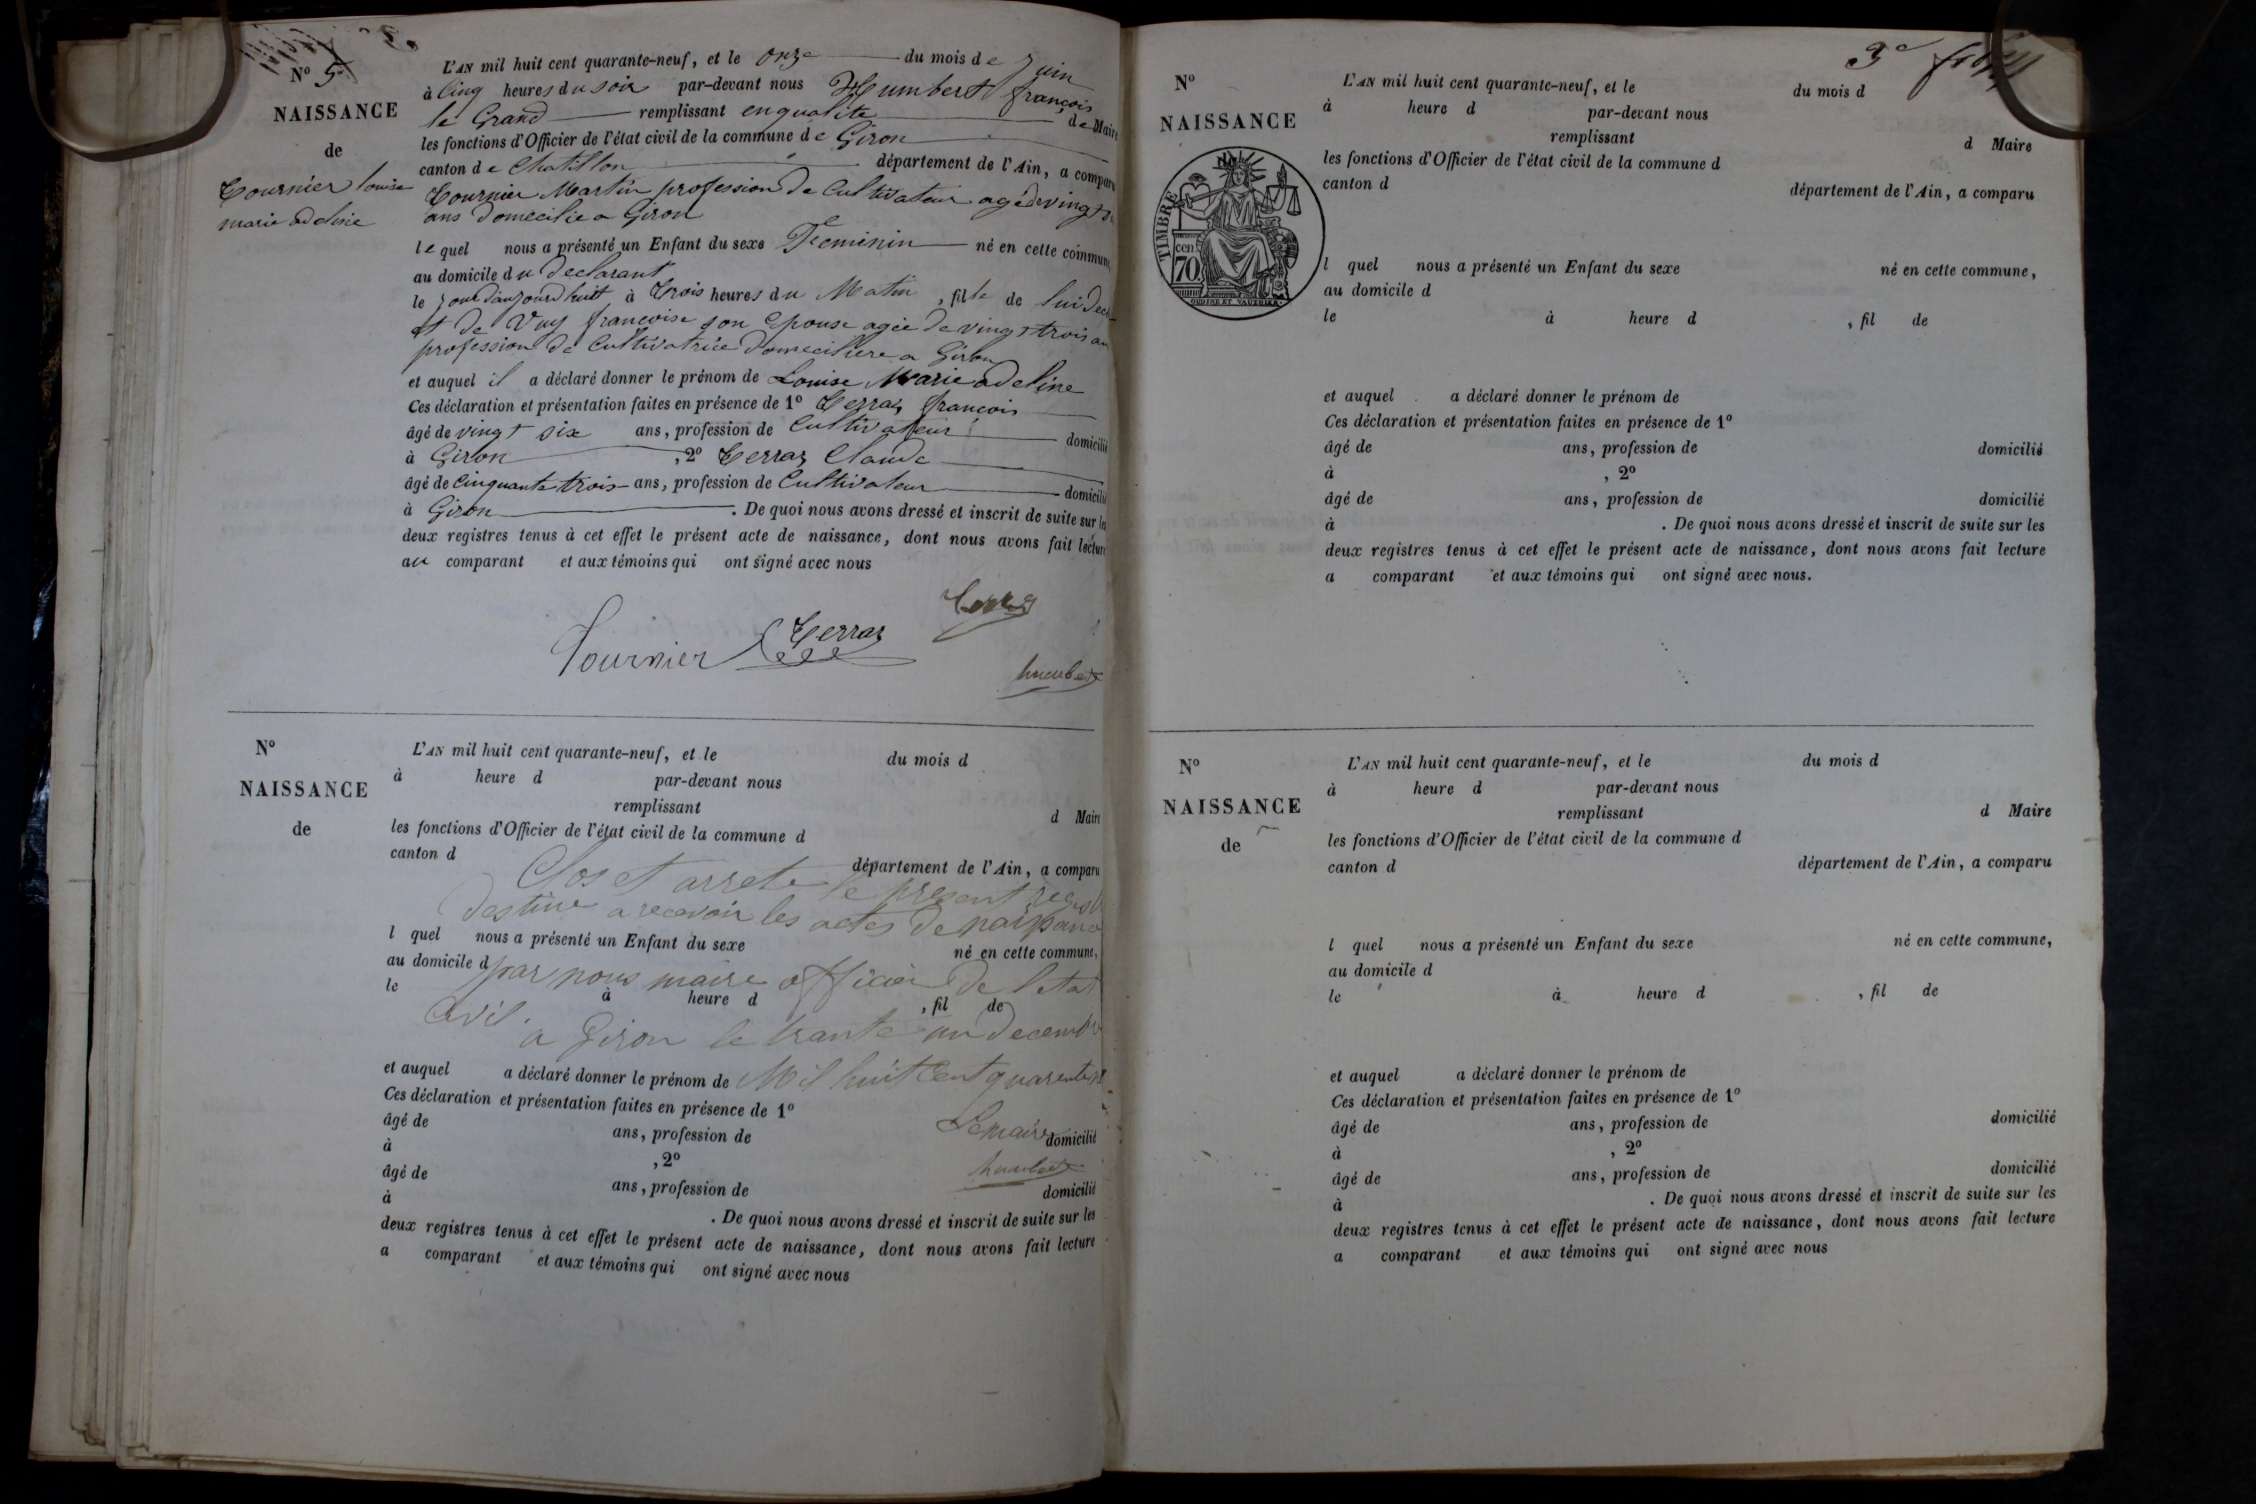 N° 5
NAISSANCE
de
Tournier louise
marie adeline
L'AN mil huit cent quarante-neuf, et le onze du mois de juin
à Cinq heures du soir par-devant nous Humbert françois
le Grand remplissant en qualité de Maire
les fonctions d'Officier de l'état civil de la commune de Giron
canton de Chatillon département de l'Ain, a comparu
Tournier Martin profession de Cultivateur agé de vingt
ans domecilié a Giron
lequel nous a présenté un Enfant du sexe Feminin né en cette commune,
au domicile du declarant
le jour d'aujourd'huit à Trois heures du Matin, fille de lui
et de Vuy francoise son epouse agée de vingt trois an
profession de Cultivatrice domeciliere a Giron
et auquel il a déclaré donner le prénom de Louise Marie adeline
Ces déclaration et présentation faites en présence de 1° Terraz françois
âgé de vingt six ans, profession de Cultivateur domicilié
à Giron, 2° Terraz Claude
âgé de Cinquante trois ans, profession de Cultivateur domicilié
à Giron. De quoi nous avons dressé et inscrit de suite sur les
deux registres tenus à cet effet le présent acte de naissance, dont nous avons fait lecture
au comparant et aux témoins qui ont signé avec nous
Terraz
Tournier Terraz
humbert
N°
NAISSANCE
de
L'AN mil huit cent quarante-neuf, et le du mois d
à heure d par-devant nous
remplissant d Maire
les fonctions d'Officier de l'état civil de la commune d
canton d département de l'Ain, a comparu
Clos et arrete le present regist
destine a recevoir les actes de naissance
l quel nous a présenté un Enfant du sexe né en cette commune,
au domicile d
par nous maire officier de letat
le à heure d, fil de
Civil.
a Giron le trante un decembre
et auquel a déclaré donner le prénom de
Mil huit Cent quarente
Ces déclaration et présentation faites en présence de 1°
Le maire
âgé de ans, profession de domicilié
à, 2°
humbert
âgé de ans, profession de domicilié
à. De quoi nous avons dressé et inscrit de suite sur les
deux registres tenus à cet effet le présent acte de naissance, dont nous avons fait lecture
a comparant et aux témoins qui ont signé avec nous
3e
N°
NAISSANCE
TIMBRE
cen
70
L'AN mil huit cent quarante-neuf, et le du mois d
à heure d par-devant nous
remplissant d Maire
les fonctions d'Officier de l'état civil de la commune d
canton d département de l'Ain, a comparu
l quel nous a présenté un Enfant du sexe né en cette commune,
au domicile d
le à heure d, fil de
et auquel a déclaré donner le prénom de
Ces déclaration et présentation faites en présence de 1°
âgé de ans, profession de domicilié
à, 2°
âgé de ans, profession de domicilié
à. De quoi nous avons dressé et inscrit de suite sur les
deux registres tenus à cet effet le présent acte de naissance, dont nous avons fait lecture
a comparant et aux témoins qui ont signé avec nous.
N°
NAISSANCE
de
L'AN mil huit cent quarante-neuf, et le du mois d
à heure d par-devant nous
remplissant d Maire
les fonctions d'Officier de l'état civil de la commune d
canton d département de l'Ain, a comparu
l quel nous a présenté un Enfant du sexe né en cette commune,
au domicile d
le à heure d, fil de
et auquel a déclaré donner le prénom de
Ces déclaration et présentation faites en présence de 1°
âgé de ans, profession de domicilié
à, 2°
âgé de ans, profession de domicilié
à. De quoi nous avons dressé et inscrit de suite sur les
deux registres tenus à cet effet le présent acte de naissance, dont nous avons fait lecture
a comparant et aux témoins qui ont signé avec nous